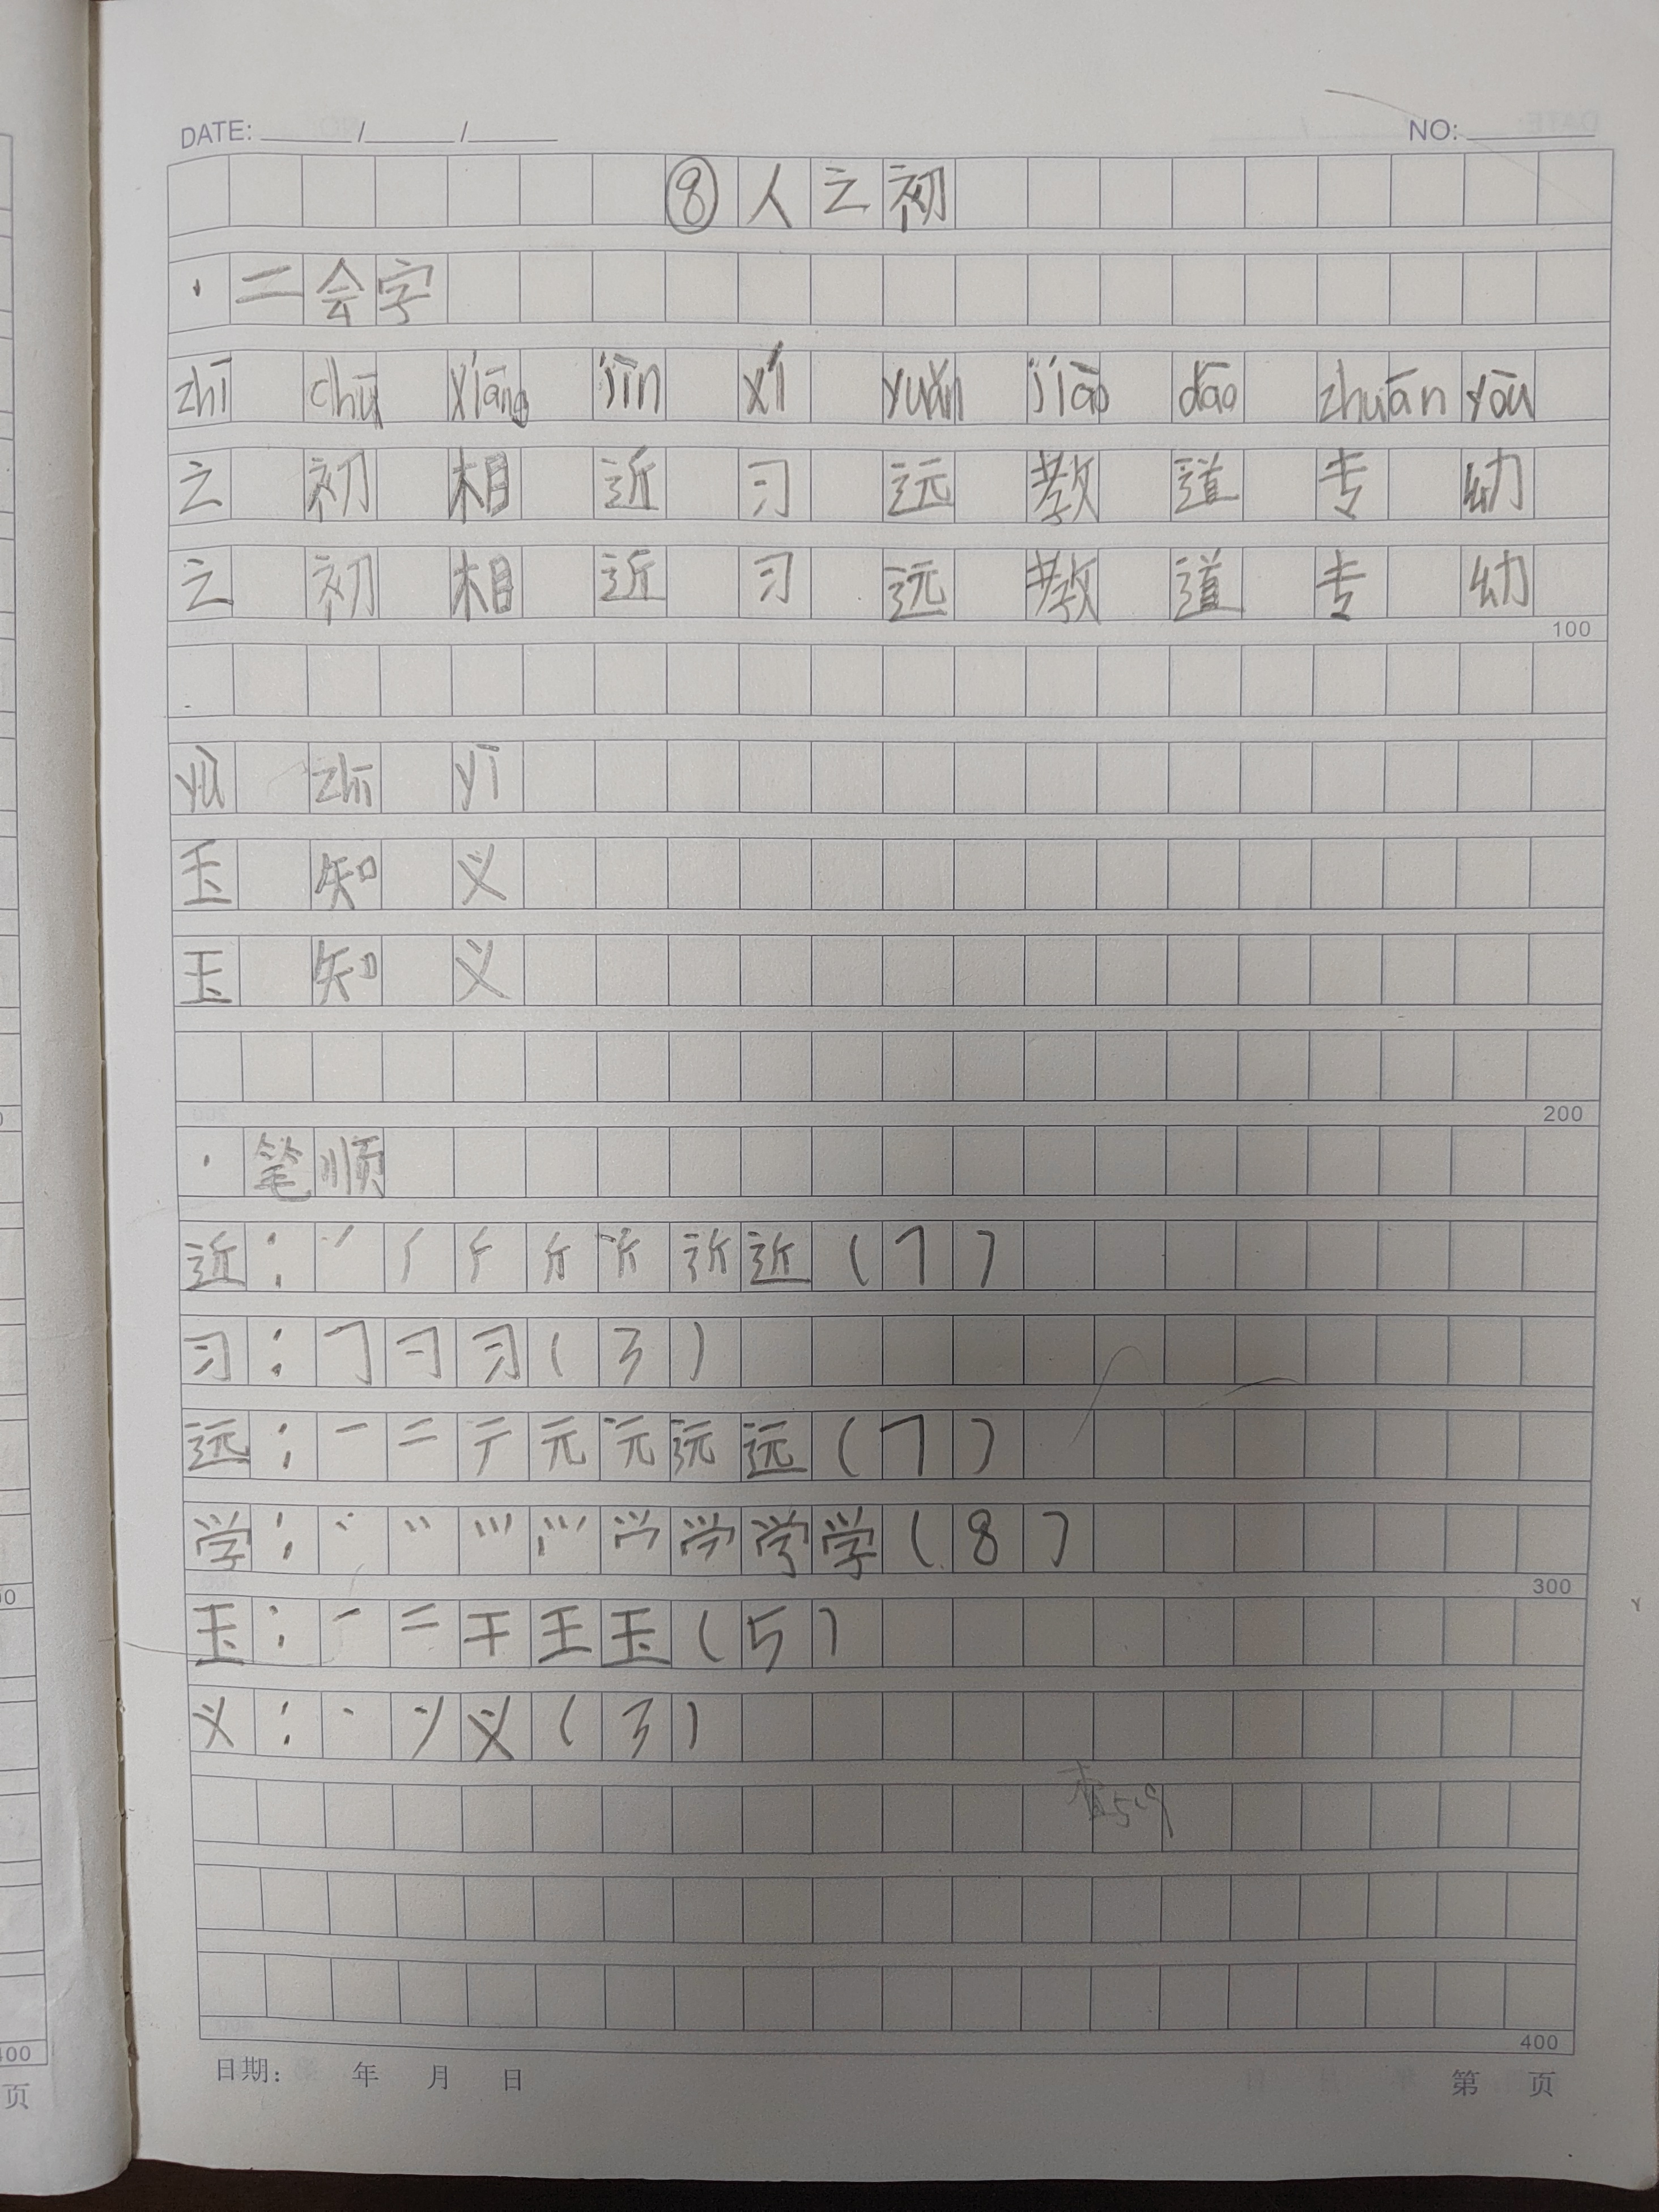 DATE: / / NO:
⑧人之初
·二会字
zhī chū xiāng jīn xí yuǎn jiāo dāo zhuān yōu
之 初 相 近 习 远 教 道 专 幼
之 初 相 近 习 远 教 道 专 幼
100
yù zhī yī
玉 知 义
玉 知 义
200
·笔顺
近：(7)
习：(3)
远：一 二 元 远(7)
学：学(8)
300
玉：一 二 干 王 玉(5)
义：义(3)
查5.9
400
日期： 年 月 日 第 页
00
页